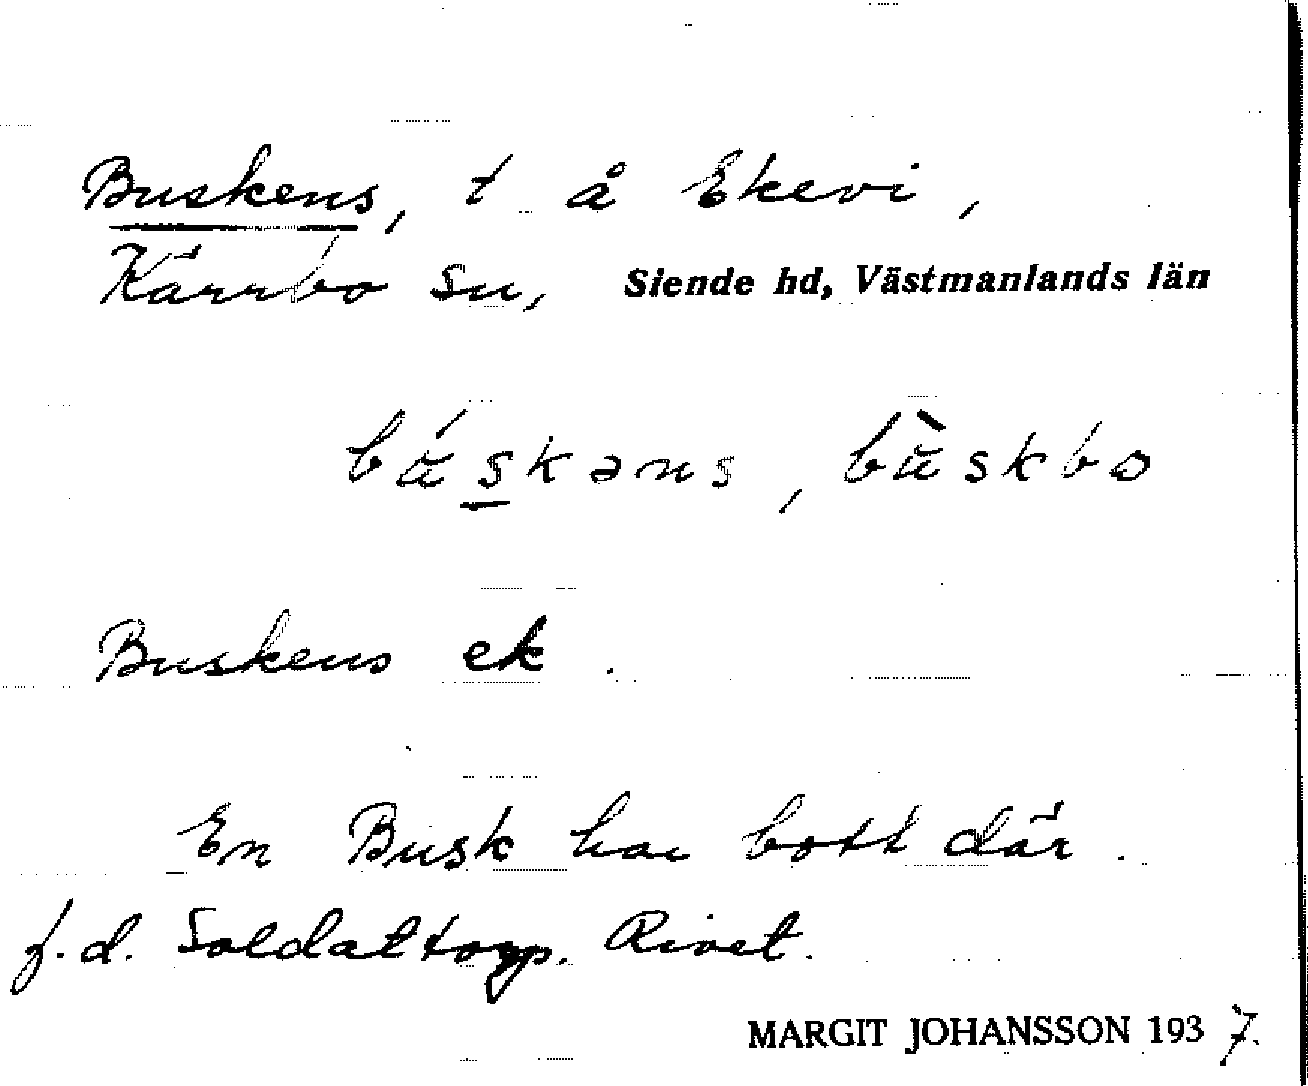 Buskens, t å Ekevi,
Kärrbo sn, Siende hd, Västmanlands län
bú̆skəns, bù̆skbo
Buskens ek.
En Busk har bott där.
f.d. Soldattorp. Rivet.
MARGIT JOHANSSON 1937.